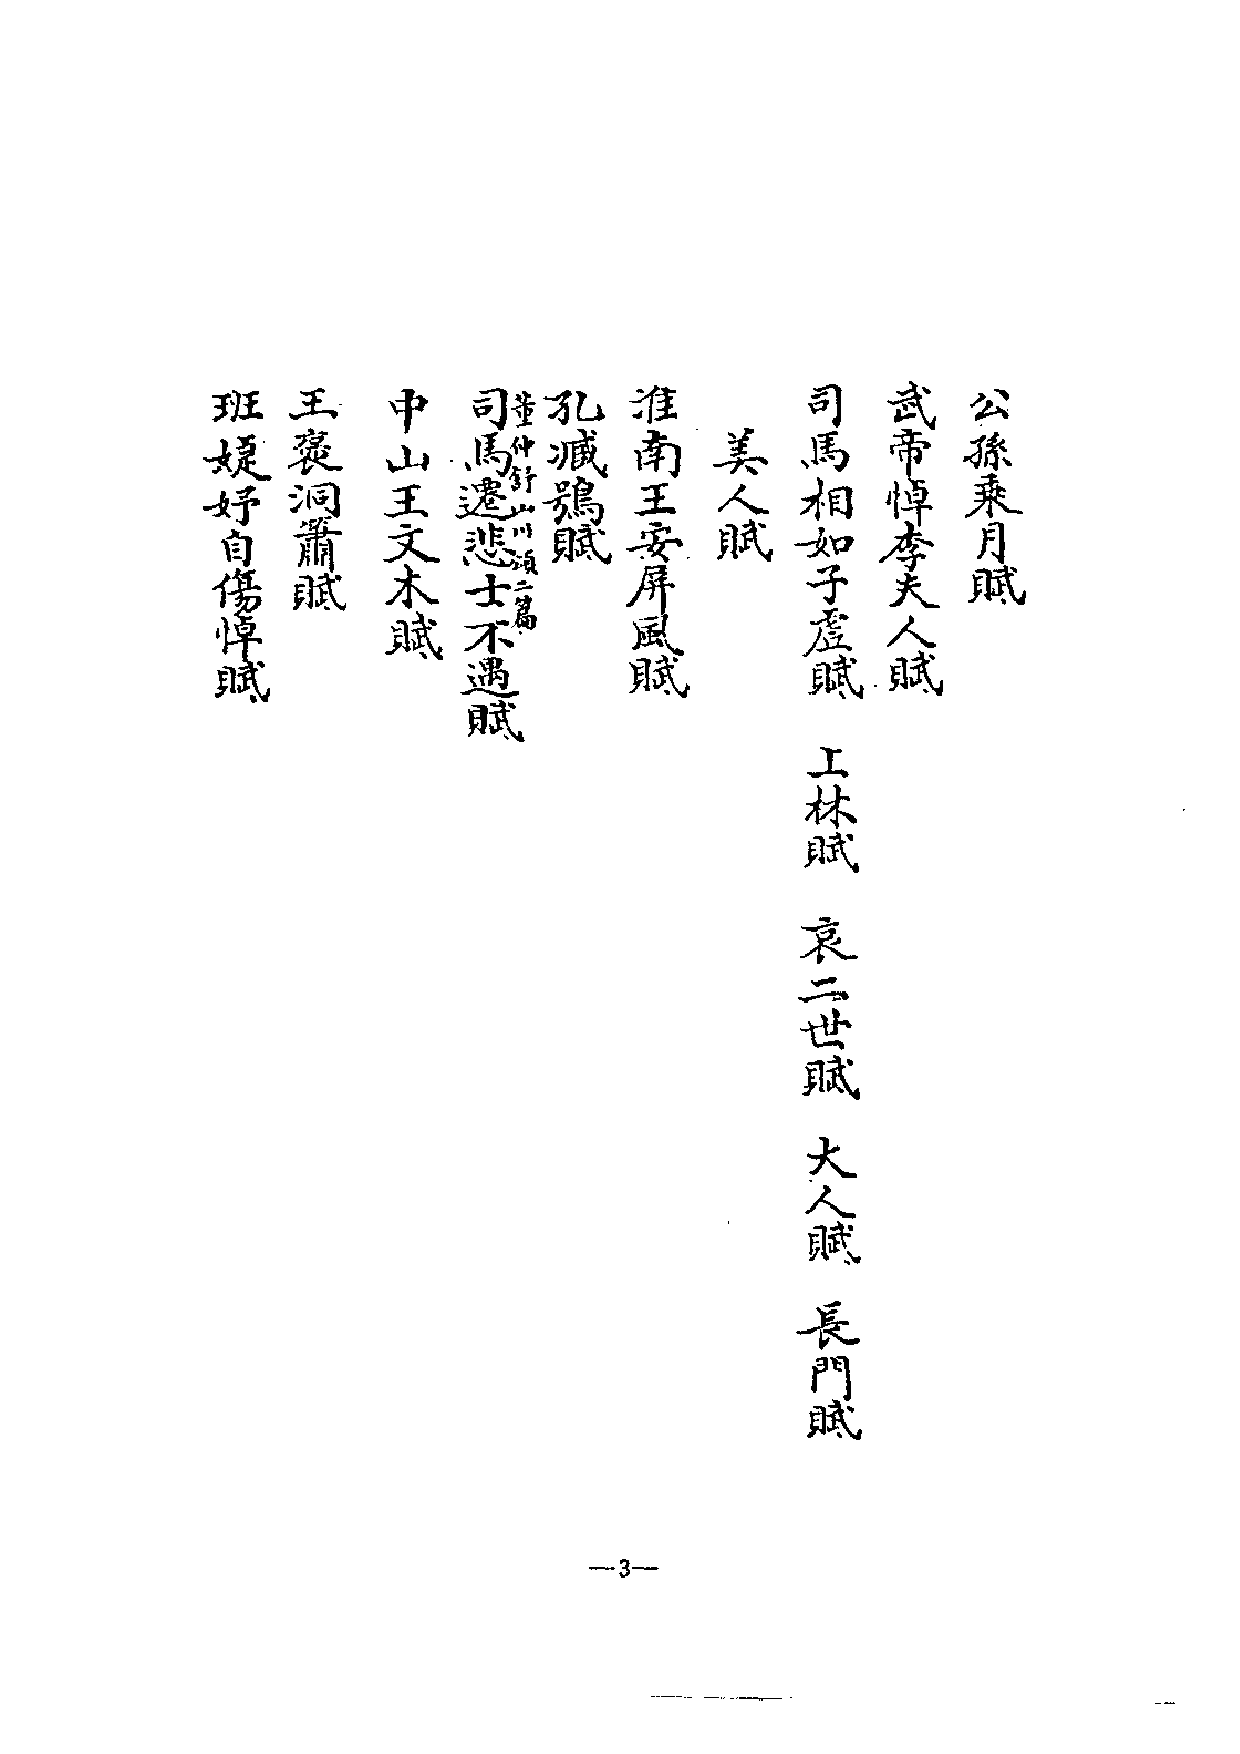 公孫乘月賦
武帝悼李夫人賦
司馬相如子虛賦　上林賦　哀二世賦　大人賦　長門賦
美人賦
淮南王安屏風賦
孔臧鴞賦
董仲舒山川頌二篇
司馬遷悲士不遇賦
中山王文木賦
王襃洞簫賦
班婕妤自傷悼賦
—3—